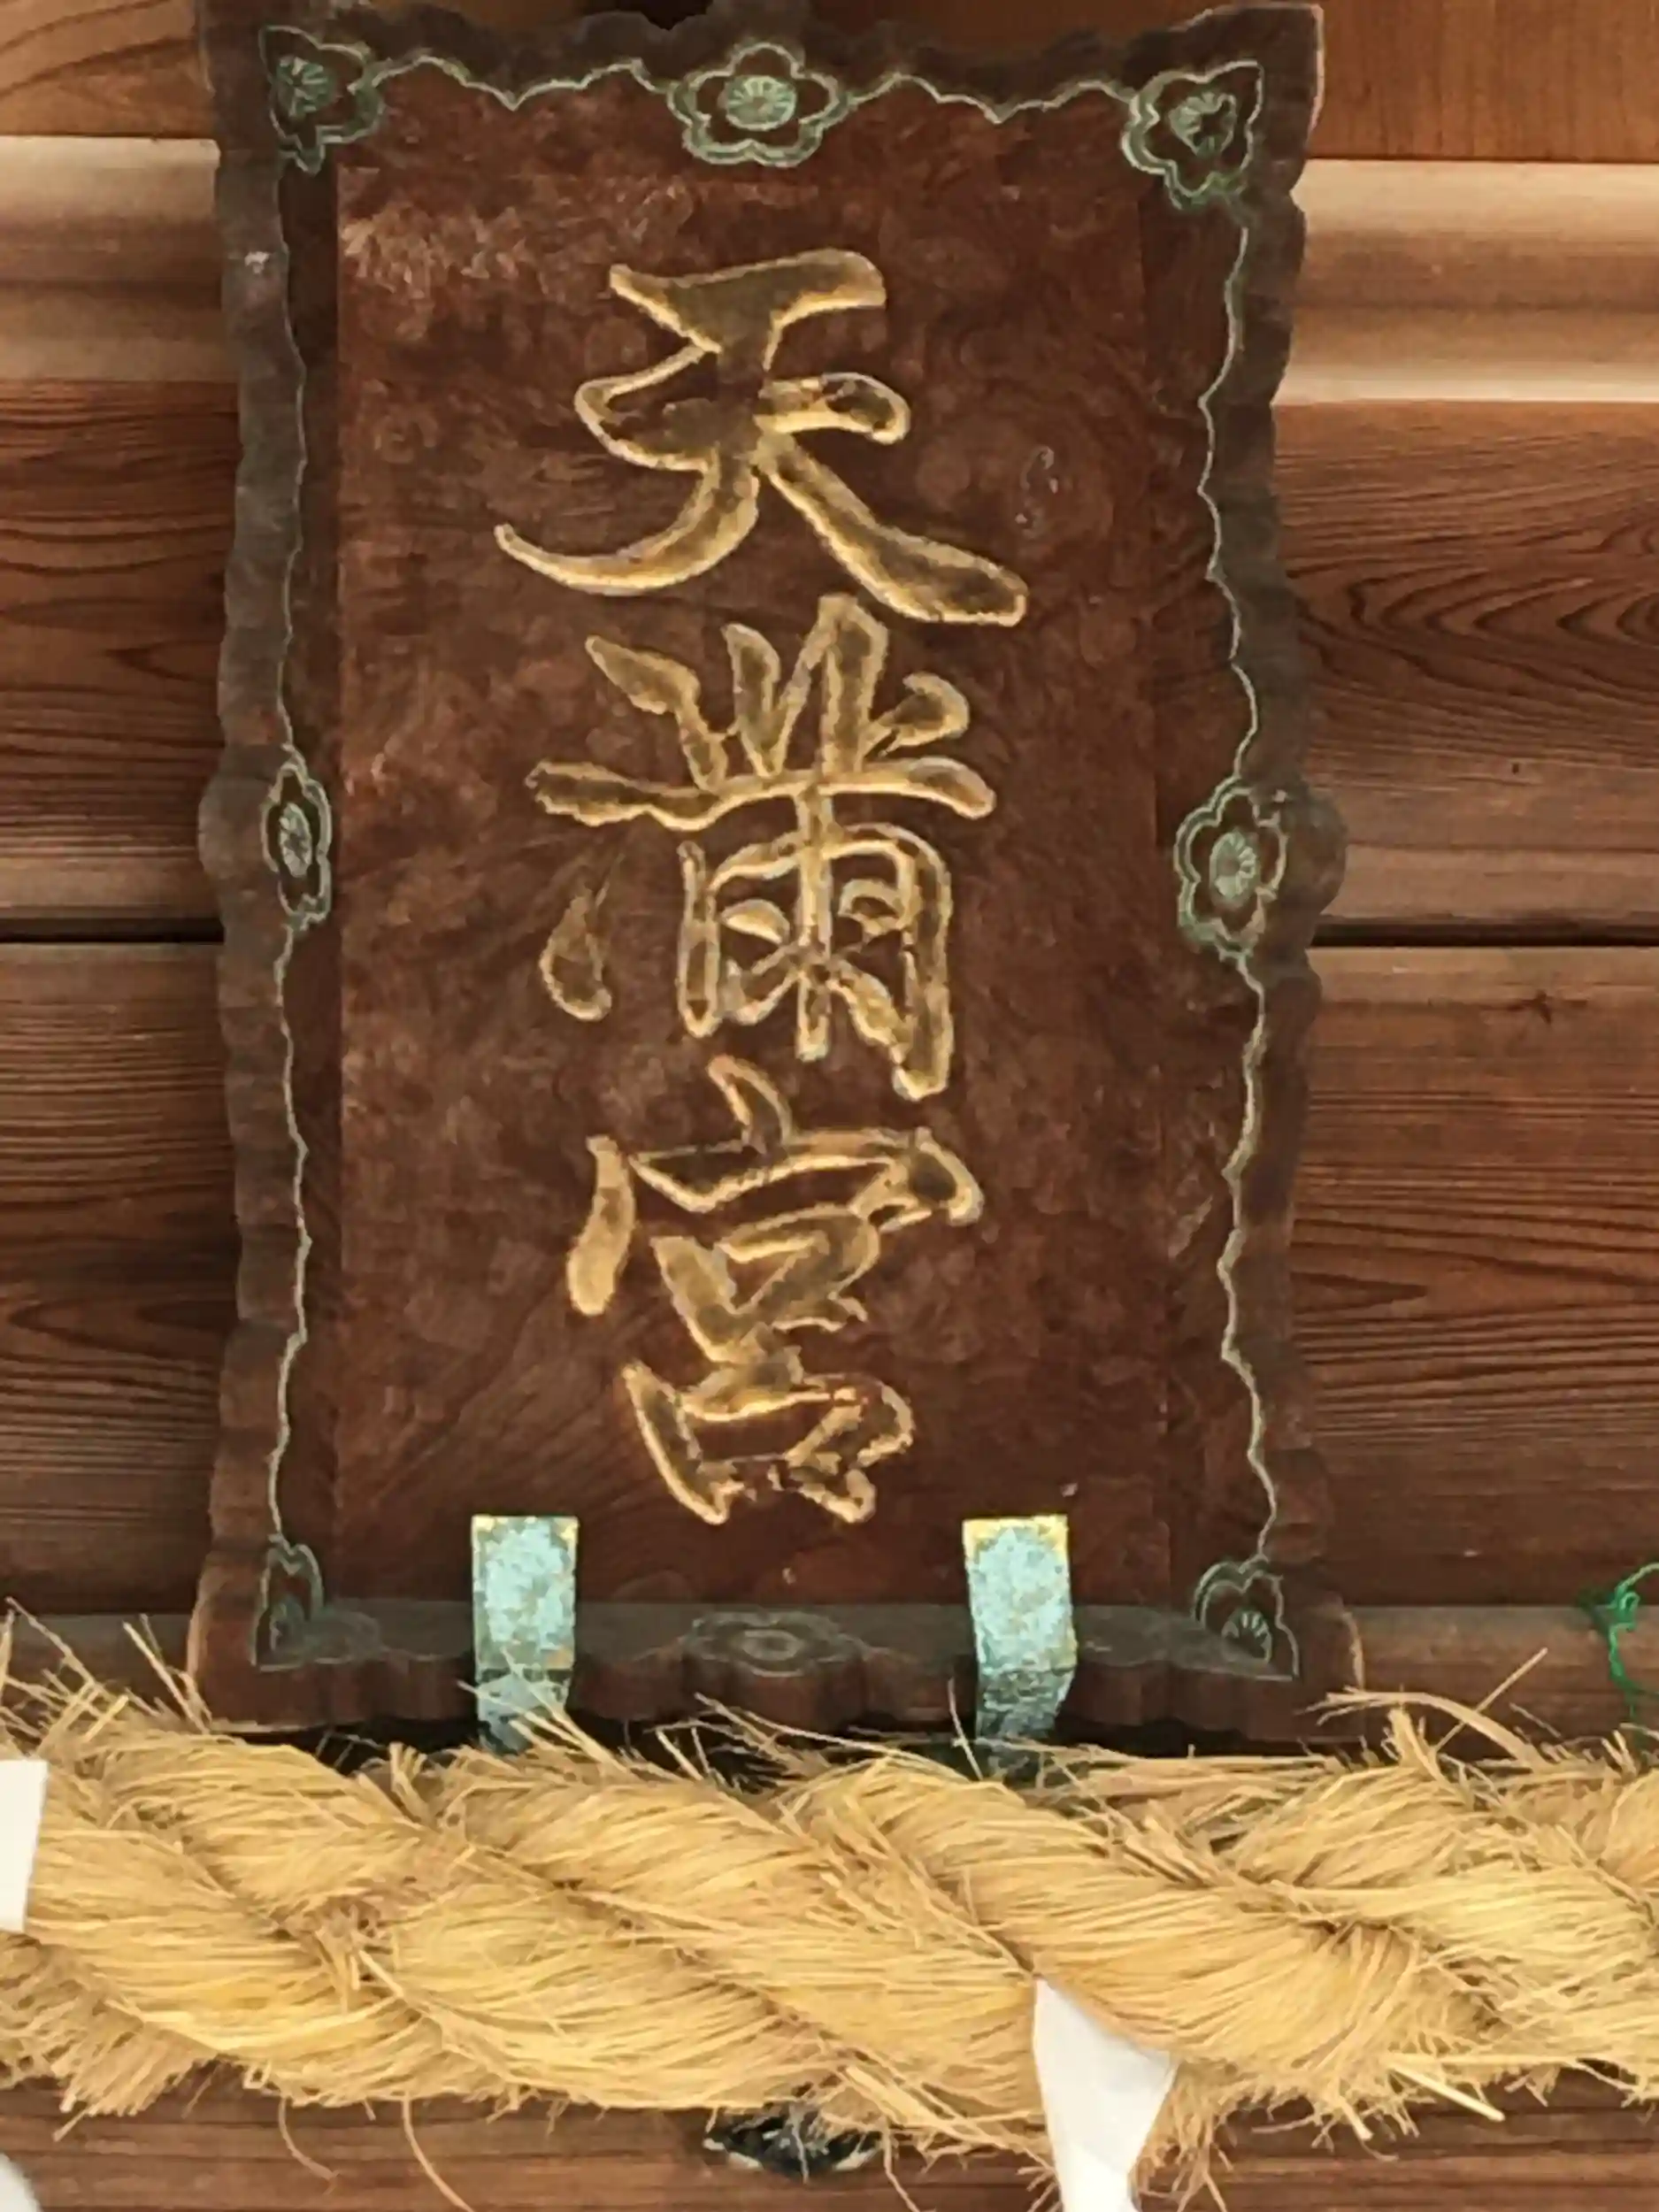 天滿宮